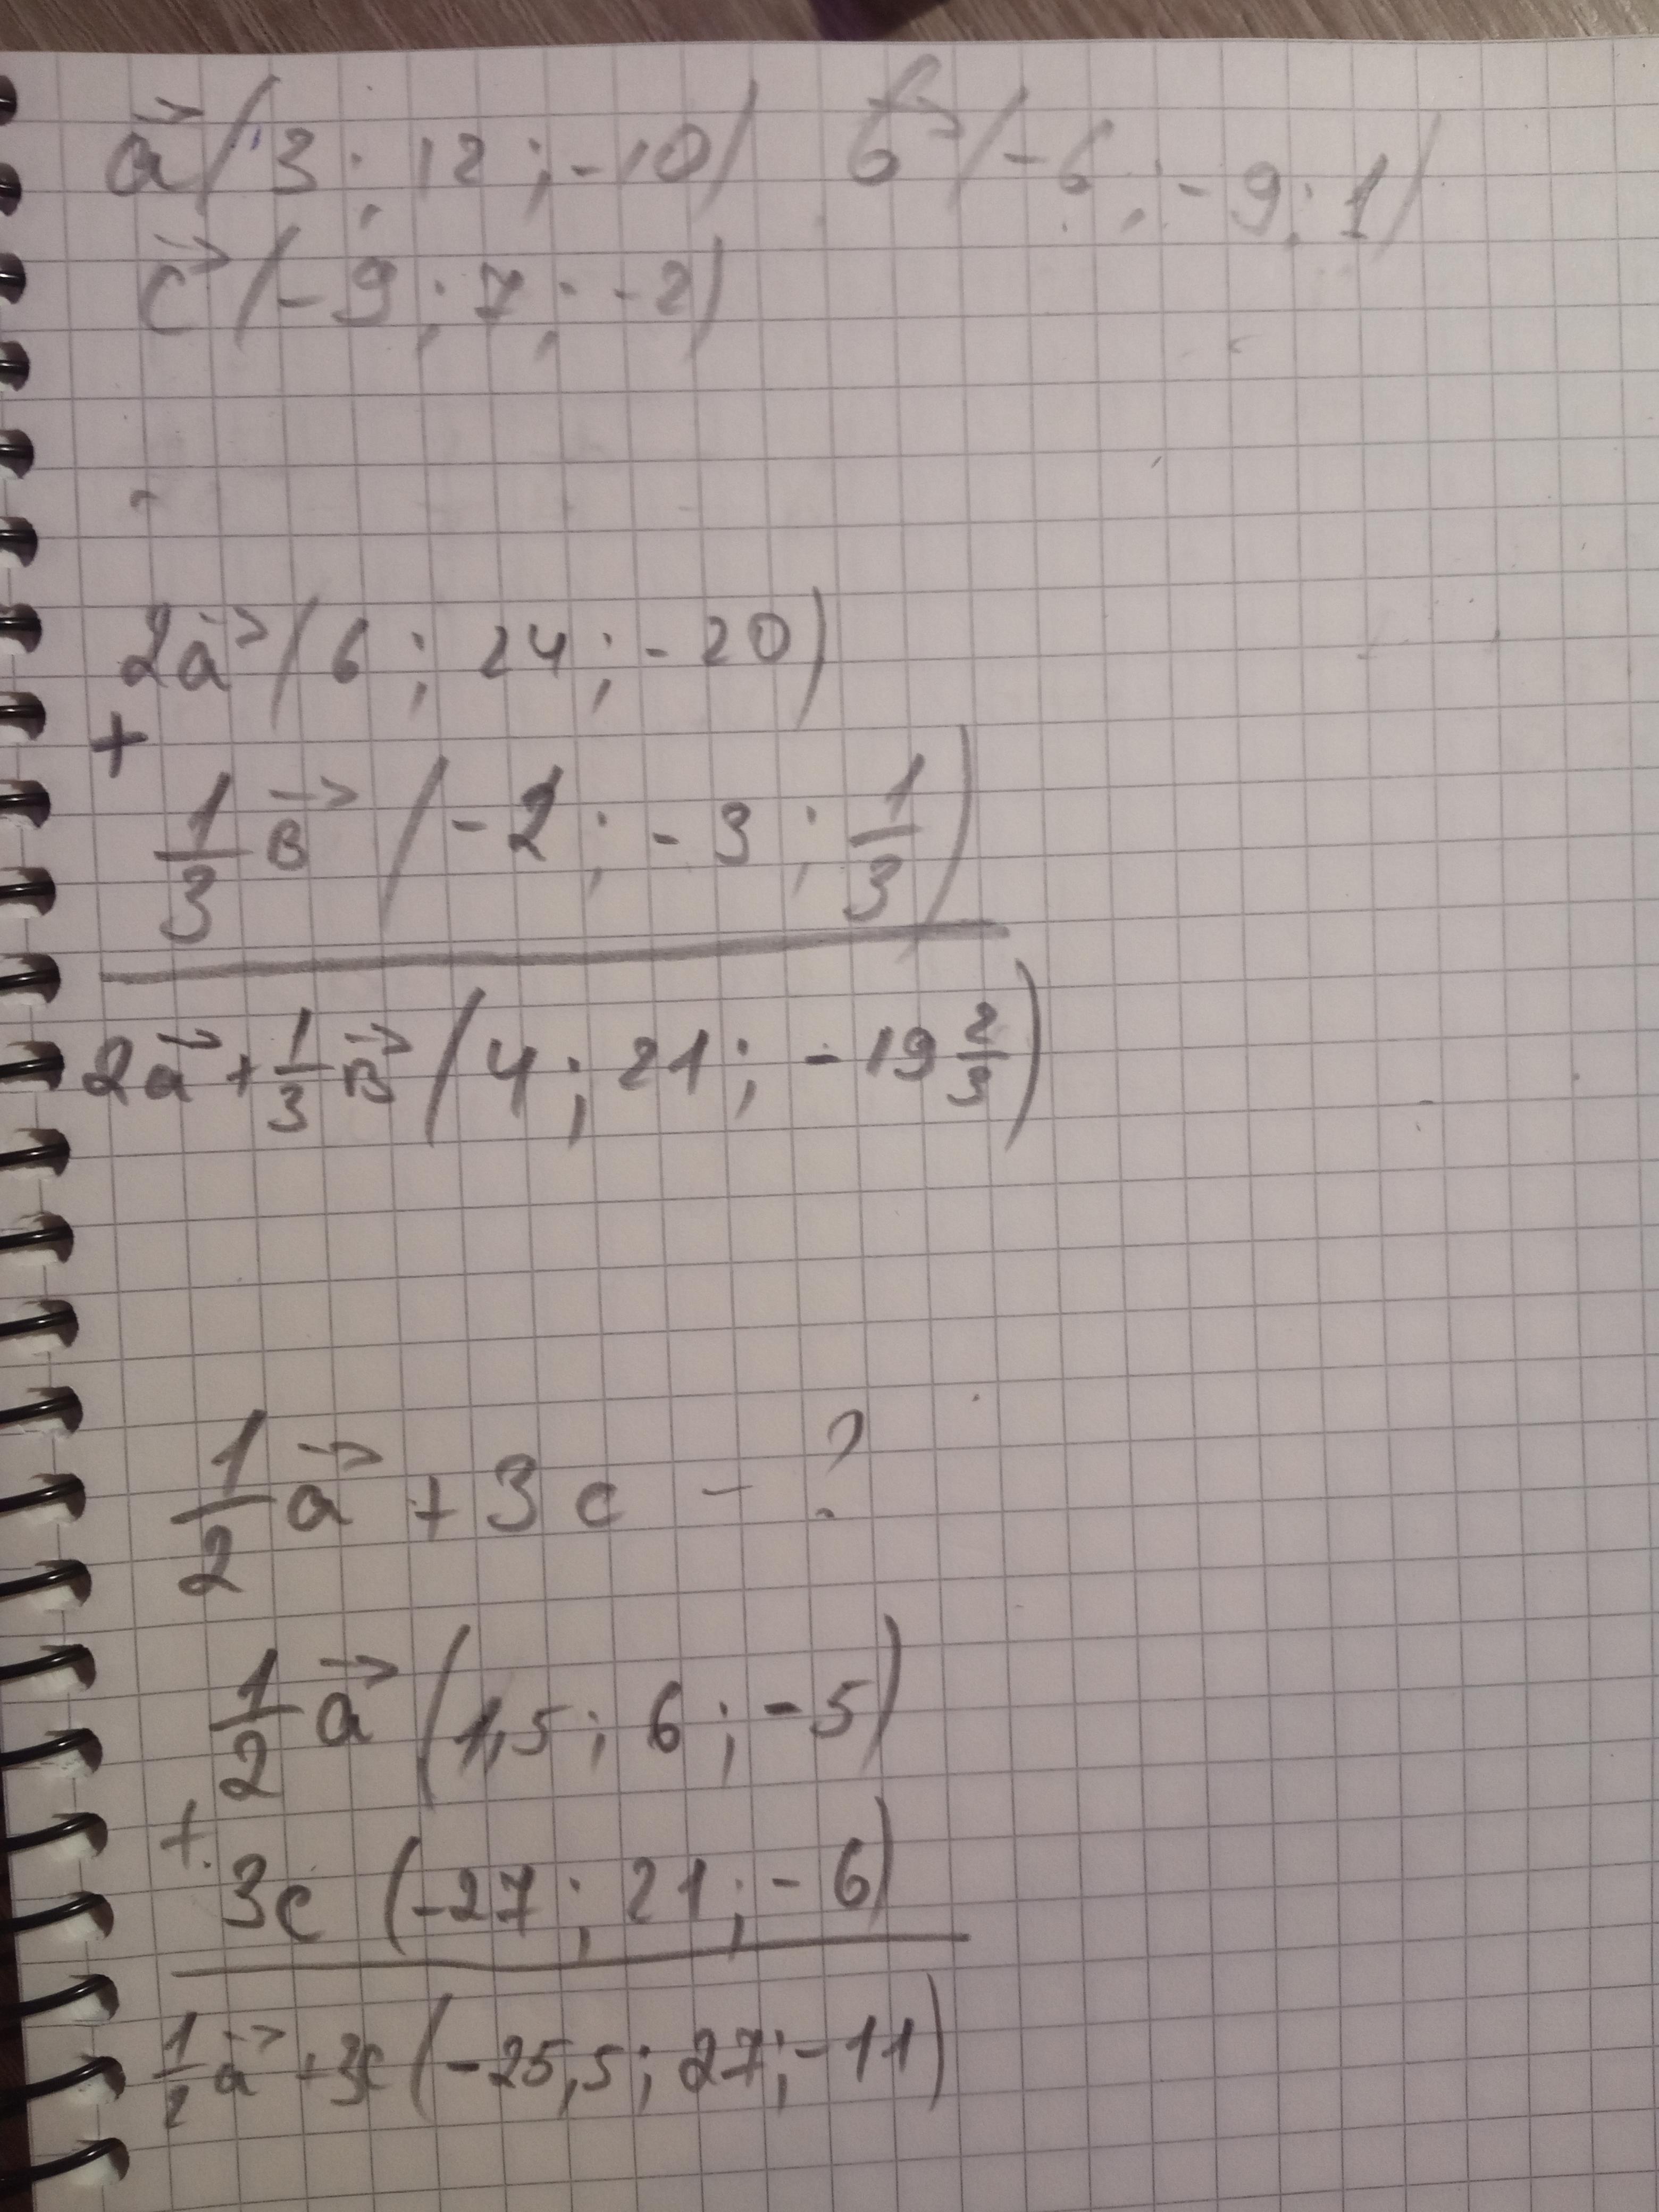 a⃗ (3; 12; -10) b⃗ (-6; -9; 1)
c⃗ (-9; 7; -2)
2a⃗ (6; 24; -20)
+
1/3 в⃗ (-2; -3; 1/3)
2a⃗ + 1/3 в⃗ (4; 21; -19 2/3)
1/2 a⃗ + 3c - ?
1/2 a⃗ (1,5; 6; -5)
+
3c (-27; 21; -6)
1/2 a⃗ + 3c (-25,5; 27; -11)